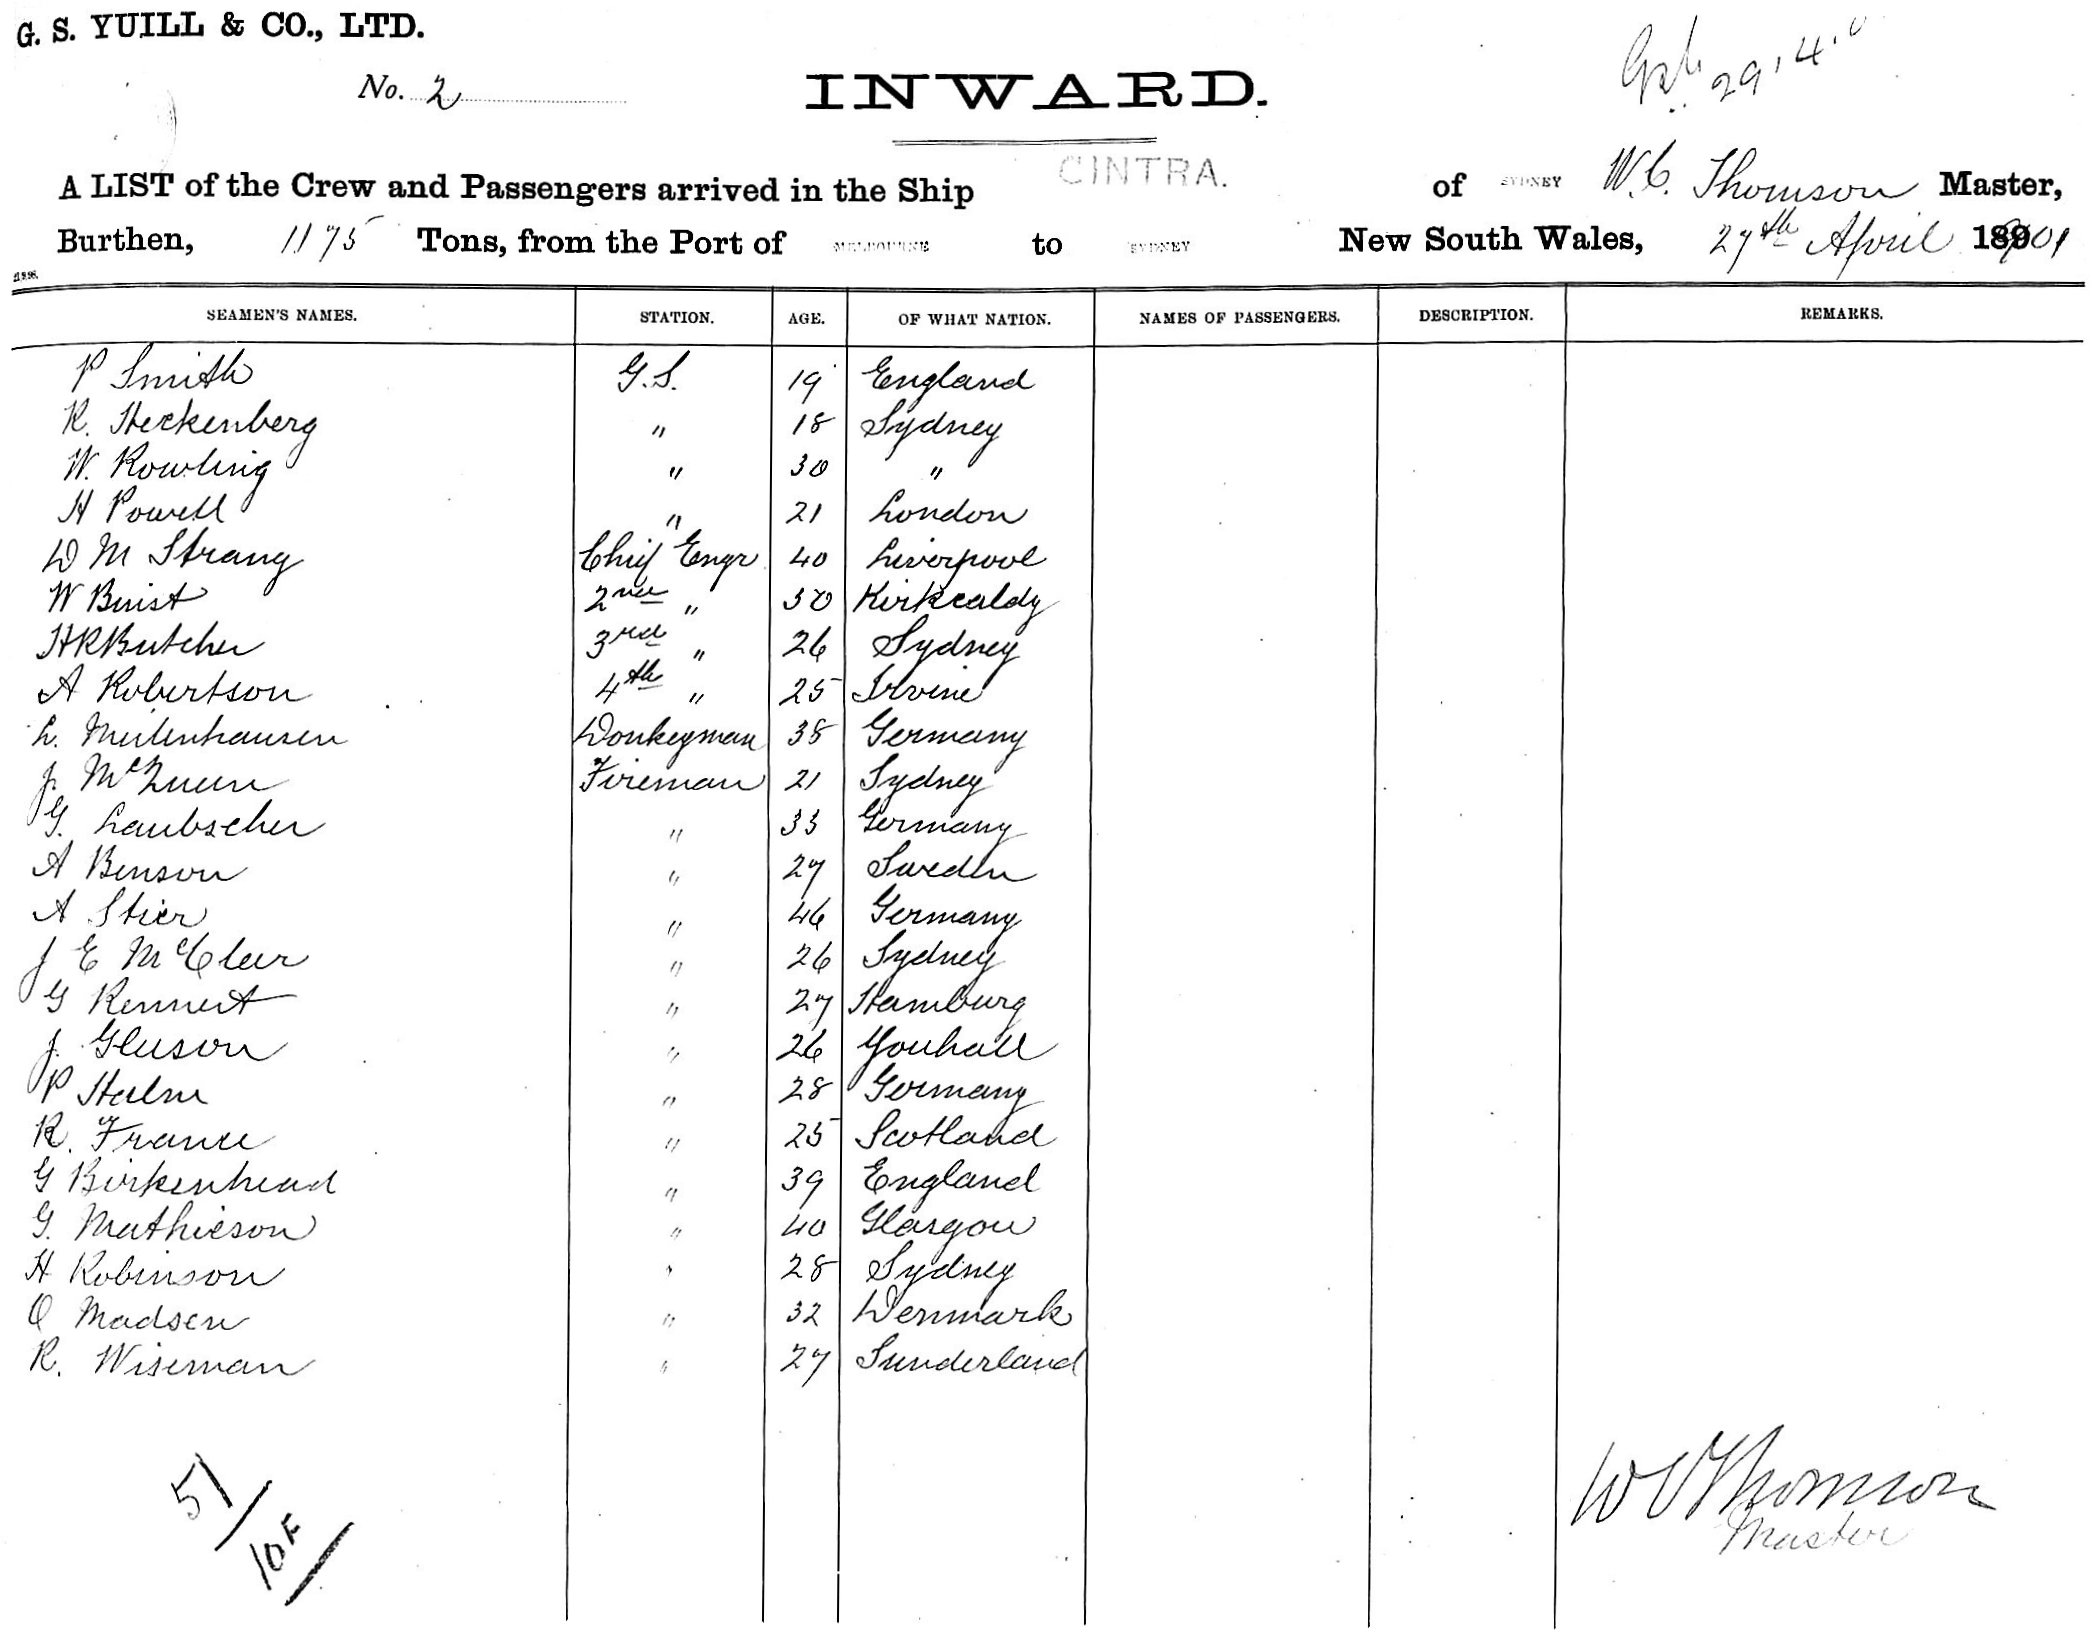 G. S. YUILL & CO., LTD.
No. 2
INWARD.
29.4.0
A LIST of the Crew and Passengers arrived in the Ship CINTRA. of SYDNEY W. C. Thomson Master,
Burthen, 1175 Tons, from the Port of MELBOURNE to SYDNEY New South Wales, 27th April 1901
SEAMEN'S NAMES. STATION. AGE. OF WHAT NATION. NAMES OF PASSENGERS. DESCRIPTION. REMARKS.
P Smith G.S. 19 England
R. Heckenberg " 18 Sydney
W. Rowling " 30 "
H Powell " 21 London
D M Strang Chief Engr 40 Liverpool
W Buist 2nd " 30 Kirkcaldy
H R Butcher 3rd " 26 Sydney
A Robertson 4th " 25 Irvine
L. Meilenhausen Donkeyman 38 Germany
J. McQueen Fireman 21 Sydney
G. Laubscher " 33 Germany
A Benson " 27 Sweden
A Stier " 46 Germany
J E McCleer " 26 Sydney
G Rennert " 27 Hamburg
J. Gleeson " 26 Youhall
P Halm " 28 Germany
R. France " 25 Scotland
G Birkenhead " 39 England
G. Mathieson " 40 Glasgow
H Robinson " 28 Sydney
O Madsen " 32 Denmark
R. Wiseman " 27 Sunderland
51/
W C Thomson
Master